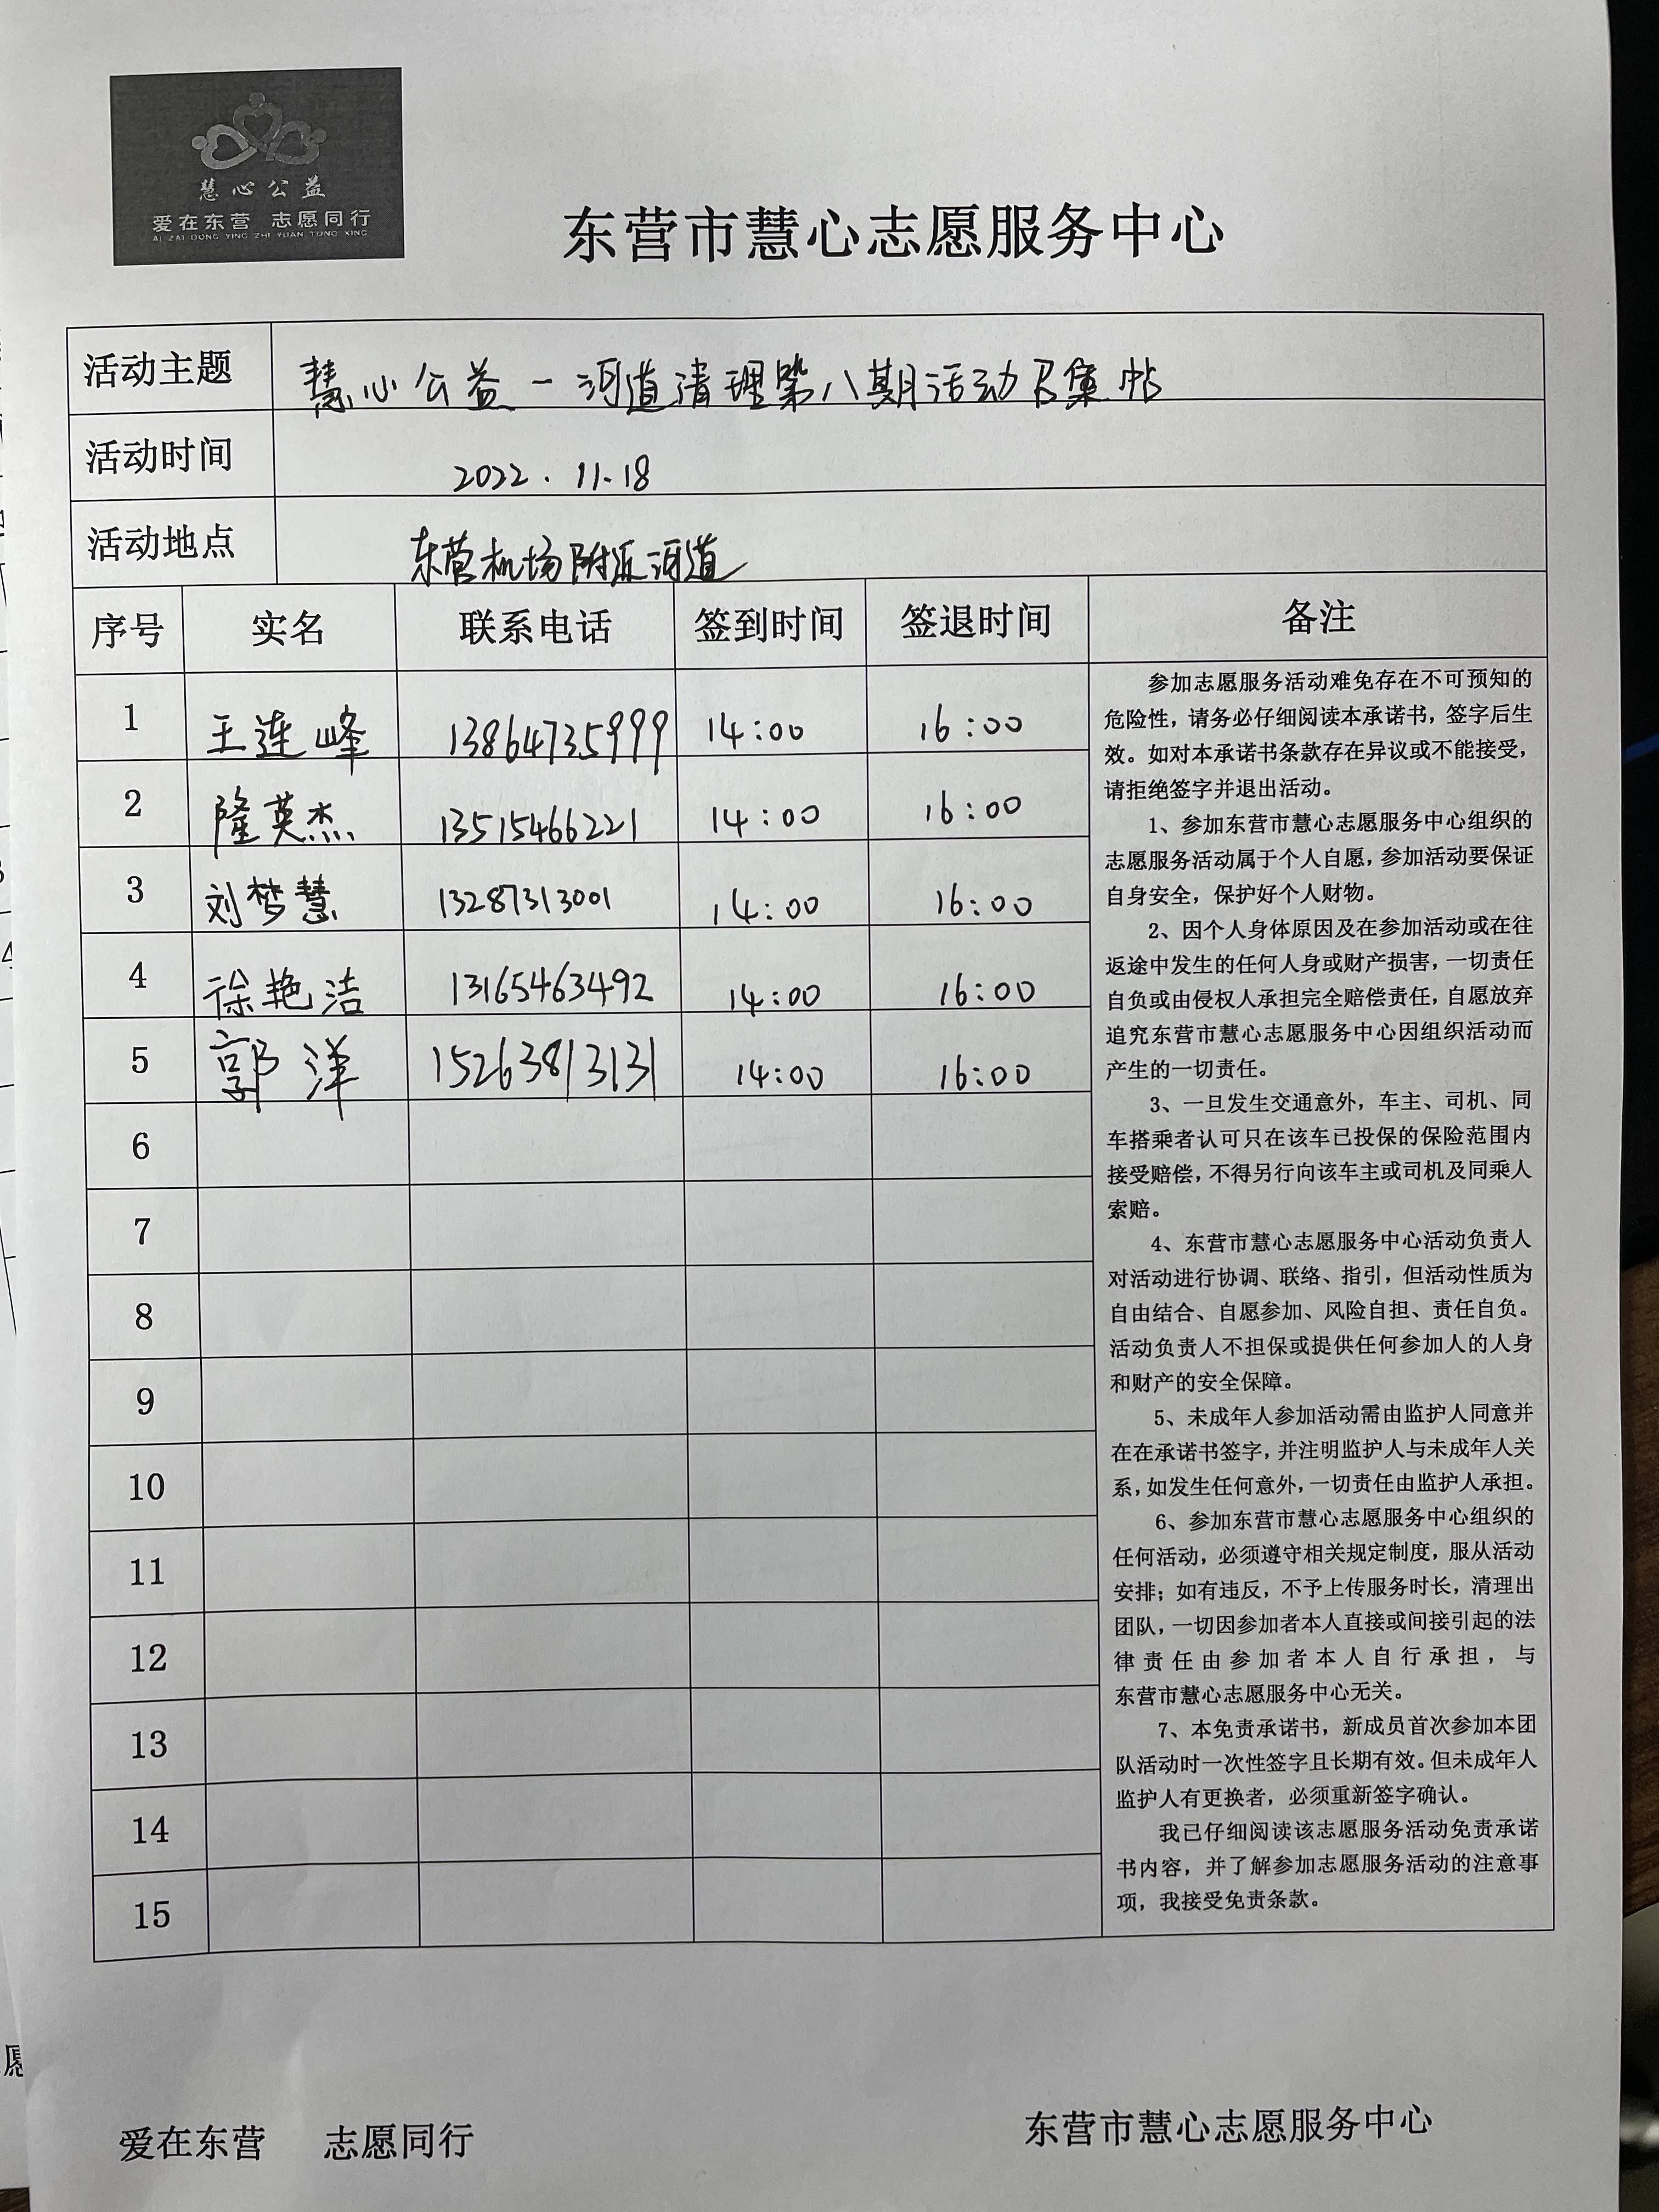 慧心公益
爱在东营 志愿同行
AI ZAI DONG YING ZHI YUAN TONG XING
东营市慧心志愿服务中心
活动主题 慧心公益-河道清理第八期活动召集帖
活动时间 2022.11.18
活动地点 东营机场附近河道
序号 实名 联系电话 签到时间 签退时间 备注
1 王连峰 13864735999 14:00 16:00
2 隆英杰 13515466221 14:00 16:00
3 刘梦慧 13287313001 14:00 16:00
4 徐艳洁 13165463492 14:00 16:00
5 郭洋 15263813131 14:00 16:00
6
7
8
9
10
11
12
13
14
15
参加志愿服务活动难免存在不可预知的
危险性，请务必仔细阅读本承诺书，签字后生
效。如对本承诺书条款存在异议或不能接受，
请拒绝签字并退出活动。
1、参加东营市慧心志愿服务中心组织的
志愿服务活动属于个人自愿，参加活动要保证
自身安全，保护好个人财物。
2、因个人身体原因及在参加活动或在往
返途中发生的任何人身或财产损害，一切责任
自负或由侵权人承担完全赔偿责任，自愿放弃
追究东营市慧心志愿服务中心因组织活动而
产生的一切责任。
3、一旦发生交通意外，车主、司机、同
车搭乘者认可只在该车已投保的保险范围内
接受赔偿，不得另行向该车主或司机及同乘人
索赔。
4、东营市慧心志愿服务中心活动负责人
对活动进行协调、联络、指引，但活动性质为
自由结合、自愿参加、风险自担、责任自负。
活动负责人不担保或提供任何参加人的人身
和财产的安全保障。
5、未成年人参加活动需由监护人同意并
在在承诺书签字，并注明监护人与未成年人关
系，如发生任何意外，一切责任由监护人承担。
6、参加东营市慧心志愿服务中心组织的
任何活动，必须遵守相关规定制度，服从活动
安排；如有违反，不予上传服务时长，清理出
团队，一切因参加者本人直接或间接引起的法
律责任由参加者本人自行承担，与
东营市慧心志愿服务中心无关。
7、本免责承诺书，新成员首次参加本团
队活动时一次性签字且长期有效。但未成年人
监护人有更换者，必须重新签字确认。
我已仔细阅读该志愿服务活动免责承诺
书内容，并了解参加志愿服务活动的注意事
项，我接受免责条款。
爱在东营 志愿同行
东营市慧心志愿服务中心